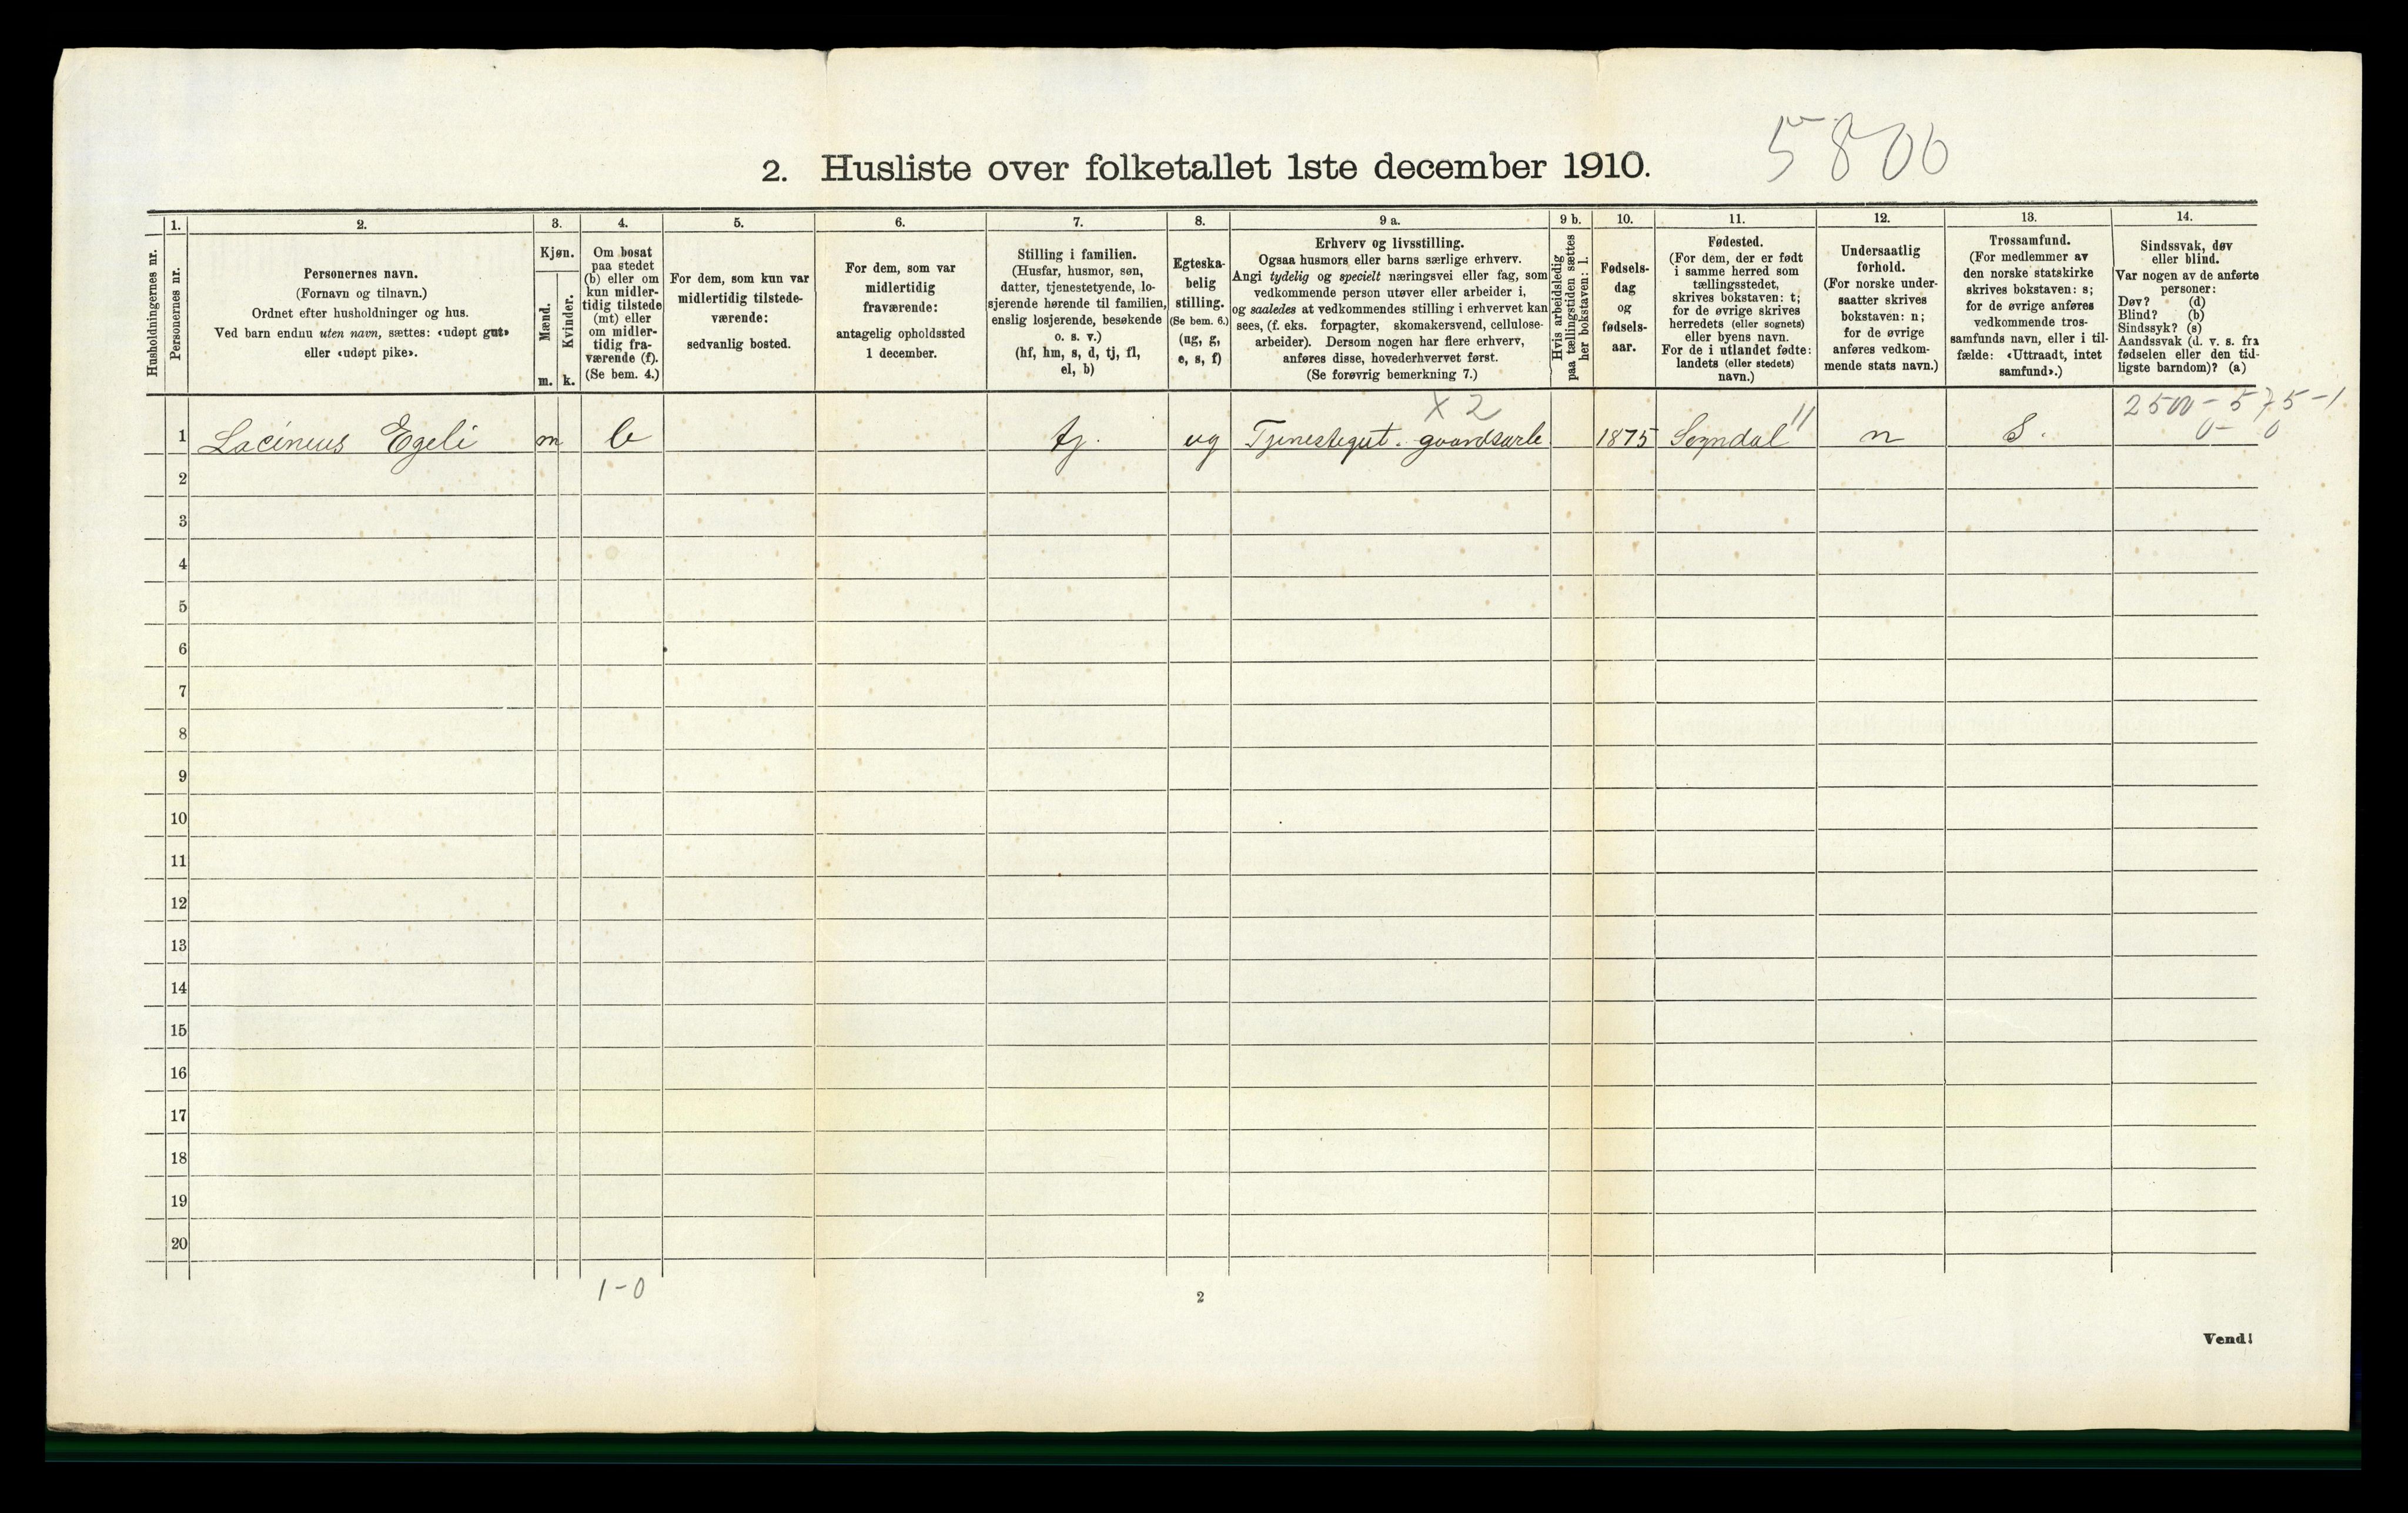 5800
2. Husliste over folketallet 1ste december 1910.
Husholdningernes nr.
1.
Personernes nr.
2.
Personernes navn.
(Fornavn og tilnavn.)
Ordnet efter husholdninger og hus.
Ved barn endnu uten navn, sættes: «udøpt gut»
eller «udøpt pike».
3.
Kjøn.
Mænd.
Kvinder.
m.
k.
4.
Om bosat
paa stedet
(b) eller om
kun midler-
tidig tilstede
(mt) eller
om midler-
tidig fra-
værende (f).
(Se bem. 4.)
5.
For dem, som kun var
midlertidig tilstede-
værende:
sedvanlig bosted.
6.
For dem, som var
midlertidig
fraværende:
antagelig opholdssted
1 december.
7.
Stilling i familien.
(Husfar, husmor, søn,
datter, tjenestetyende, lo-
sjerende hørende til familien,
enslig losjerende, besøkende
o. s. v.)
(hf, hm, s, d, tj, fl,
el, b)
8.
Egteska-
belig
stilling.
(Se bem. 6.)
(ug, g,
e, s, f)
9 a.
Erhverv og livsstilling.
Ogsaa husmors eller barns særlige erhverv.
Angi tydelig og specielt næringsvei eller fag, som
vedkommende person utøver eller arbeider i,
og saaledes at vedkommendes stilling i erhvervet kan
sees, (f. eks. forpagter, skomakersvend, cellulose-
arbeider). Dersom nogen har flere erhverv,
anføres disse, hovederhvervet først.
(Se forøvrig bemerkning 7.)
9 b.
Hvis arbeidsledig
paa tællingstiden sættes
her bokstaven: l.
10.
Fødsels-
dag
og
fødsels-
aar.
11.
Fødested.
(For dem, der er født
i samme herred som
tællingsstedet,
skrives bokstaven: t;
for de øvrige skrives
herredets (eller sognets)
eller byens navn.
For de i utlandet fødte:
landets (eller stedets)
navn.)
12.
Undersaatlig
forhold.
(For norske under-
saatter skrives
bokstaven: n;
for de øvrige
anføres vedkom-
mende stats navn.)
13.
Trossamfund.
(For medlemmer av
den norske statskirke
skrives bokstaven: s;
for de øvrige anføres
vedkommende tros-
samfunds navn, eller i til-
fælde: «Uttraadt, intet
samfund».)
14.
Sindssvak, døv
eller blind.
Var nogen av de anførte
personer:
Døv? (d)
Blind? (b)
Sindssyk? (s)
Aandssvak (d. v. s. fra
fødselen eller den tid-
ligste barndom)? (a)
x 2
2500 - 575 - 1
0 - 0
1 Lacineus Egeli m b tj. ug Tjenestegut. gaardsarb 1875 Sogndal 11 n S.
2
3
4
5
6
7
8
9
10
11
12
13
14
15
16
17
18
19
20
1-0
2
Vend!